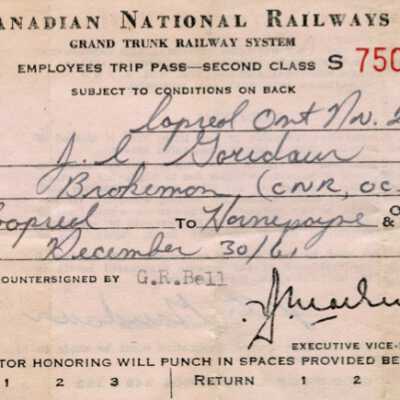 ANADIAN NATIONAL RAILWAYS
GRAND TRUNK RAILWAY SYSTEM
EMPLOYEES TRIP PASS—SECOND CLASS S 750
SUBJECT TO CONDITIONS ON BACK
Capreol Ont Nov. 2
J. L
Brakeman (CNR, OC
Capreol TO Hornepayne &
December 30/61
COUNTERSIGNED BY G.R.Bell
EXECUTIVE VICE-
TOR HONORING WILL PUNCH IN SPACES PROVIDED BE
1 2 3 RETURN 1 2